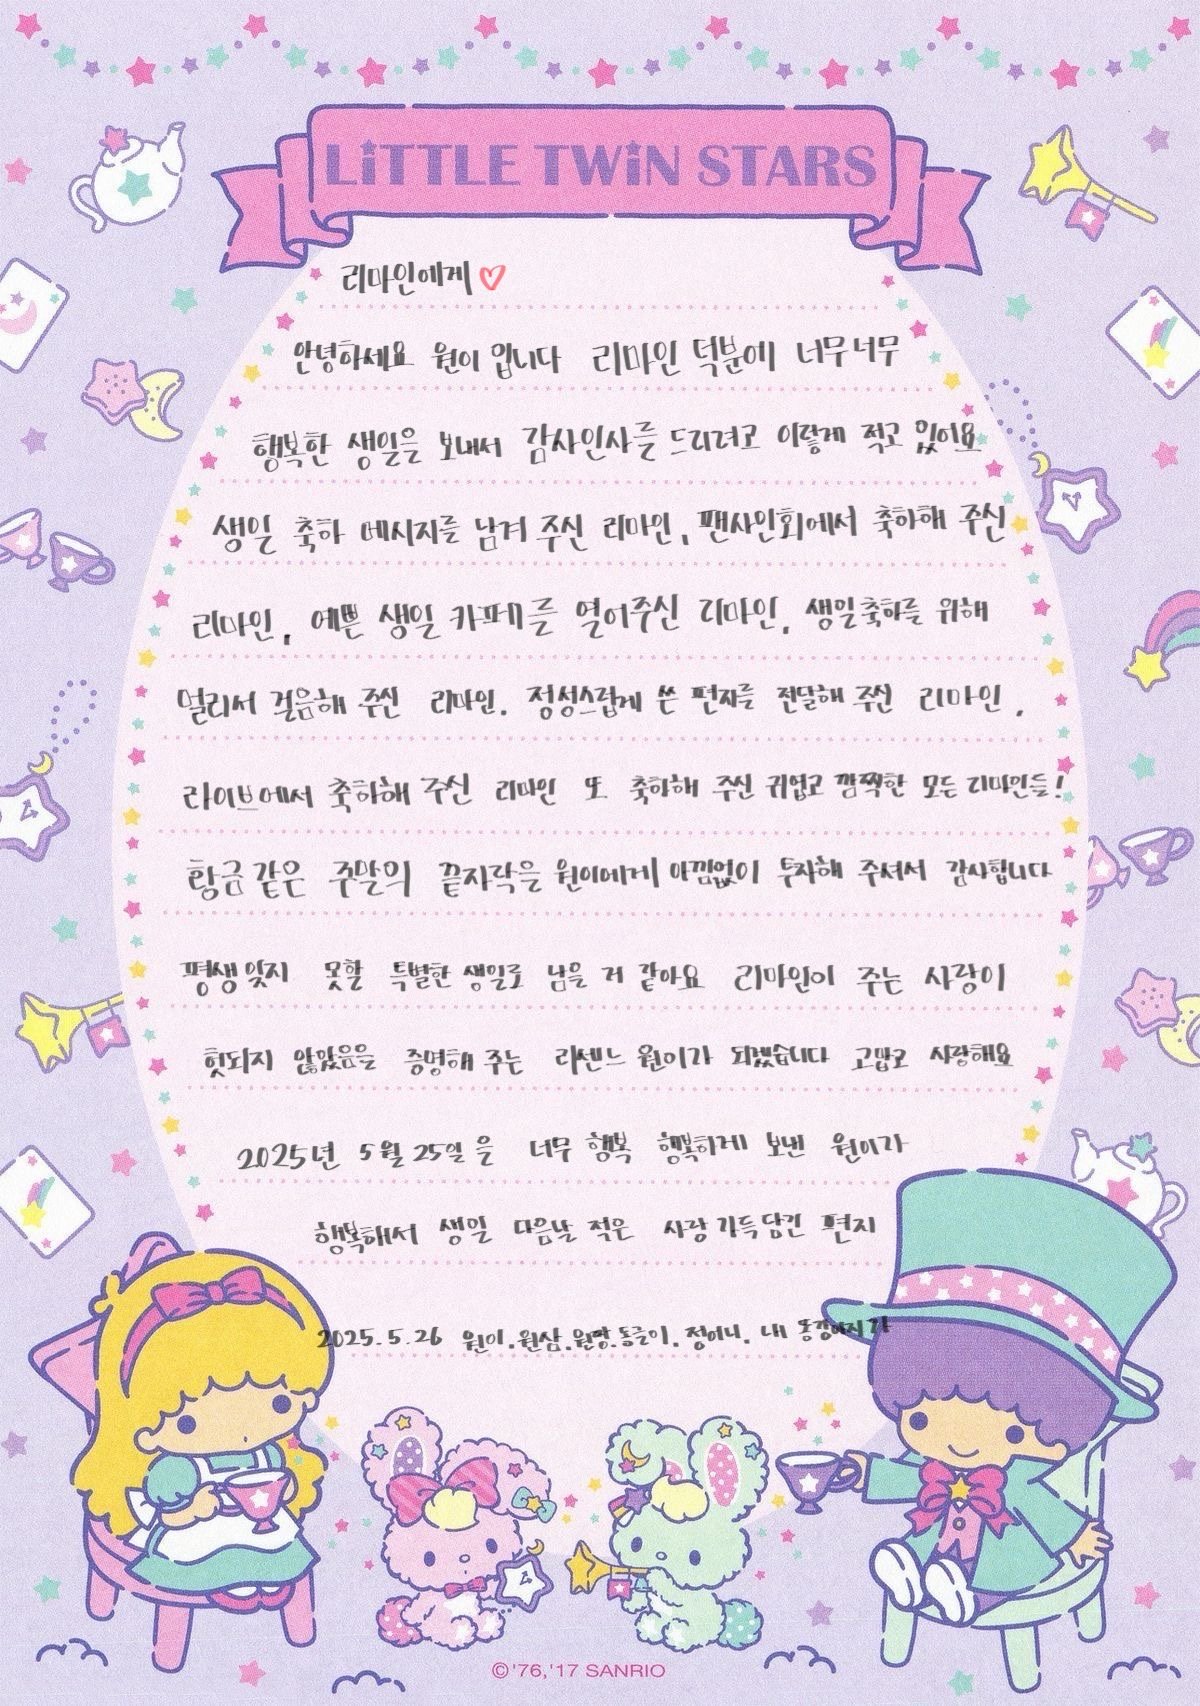 LiTTLE TWiN STARS
리마인에게♡
안녕하세요 원이 입니다 리마인 덕분에 너무너무
행복한 생일을 보내서 감사인사를 드리려고 이렇게 적고 있어요
생일 축하 메시지를 남겨 주신 리마인, 팬사인회에서 축하해 주신
리마인, 예쁜 생일 카페를 열어주신 리마인, 생일축하를 위해
멀리서 걸음해 주신 리마인. 정성스럽게 쓴 편지를 전달해 주신 리마인,
라이브에서 축하해 주신 리마인 또 축하해 주신 귀엽고 깜찍한 모든 리마인들!
황금같은 주말의 끝자락을 원이에게 아낌없이 투자해 주셔서 감사합니다
평생 잊지 못할 특별한 생일로 남을 거 같아요 리마인이 주는 사랑이
헛되지 않았음을 증명해 주는 리센느 원이가 되겠습니다 고맙고 사랑해요
2025년 5월 25일 을 너무 행복 행복하게 보낸 원이가
행복해서 생일 다음날 적은 사랑 가득담긴 편지
2025.5.26 원이.원삼.원망.동글이.정이니. 내
©'76,'17 SANRIO